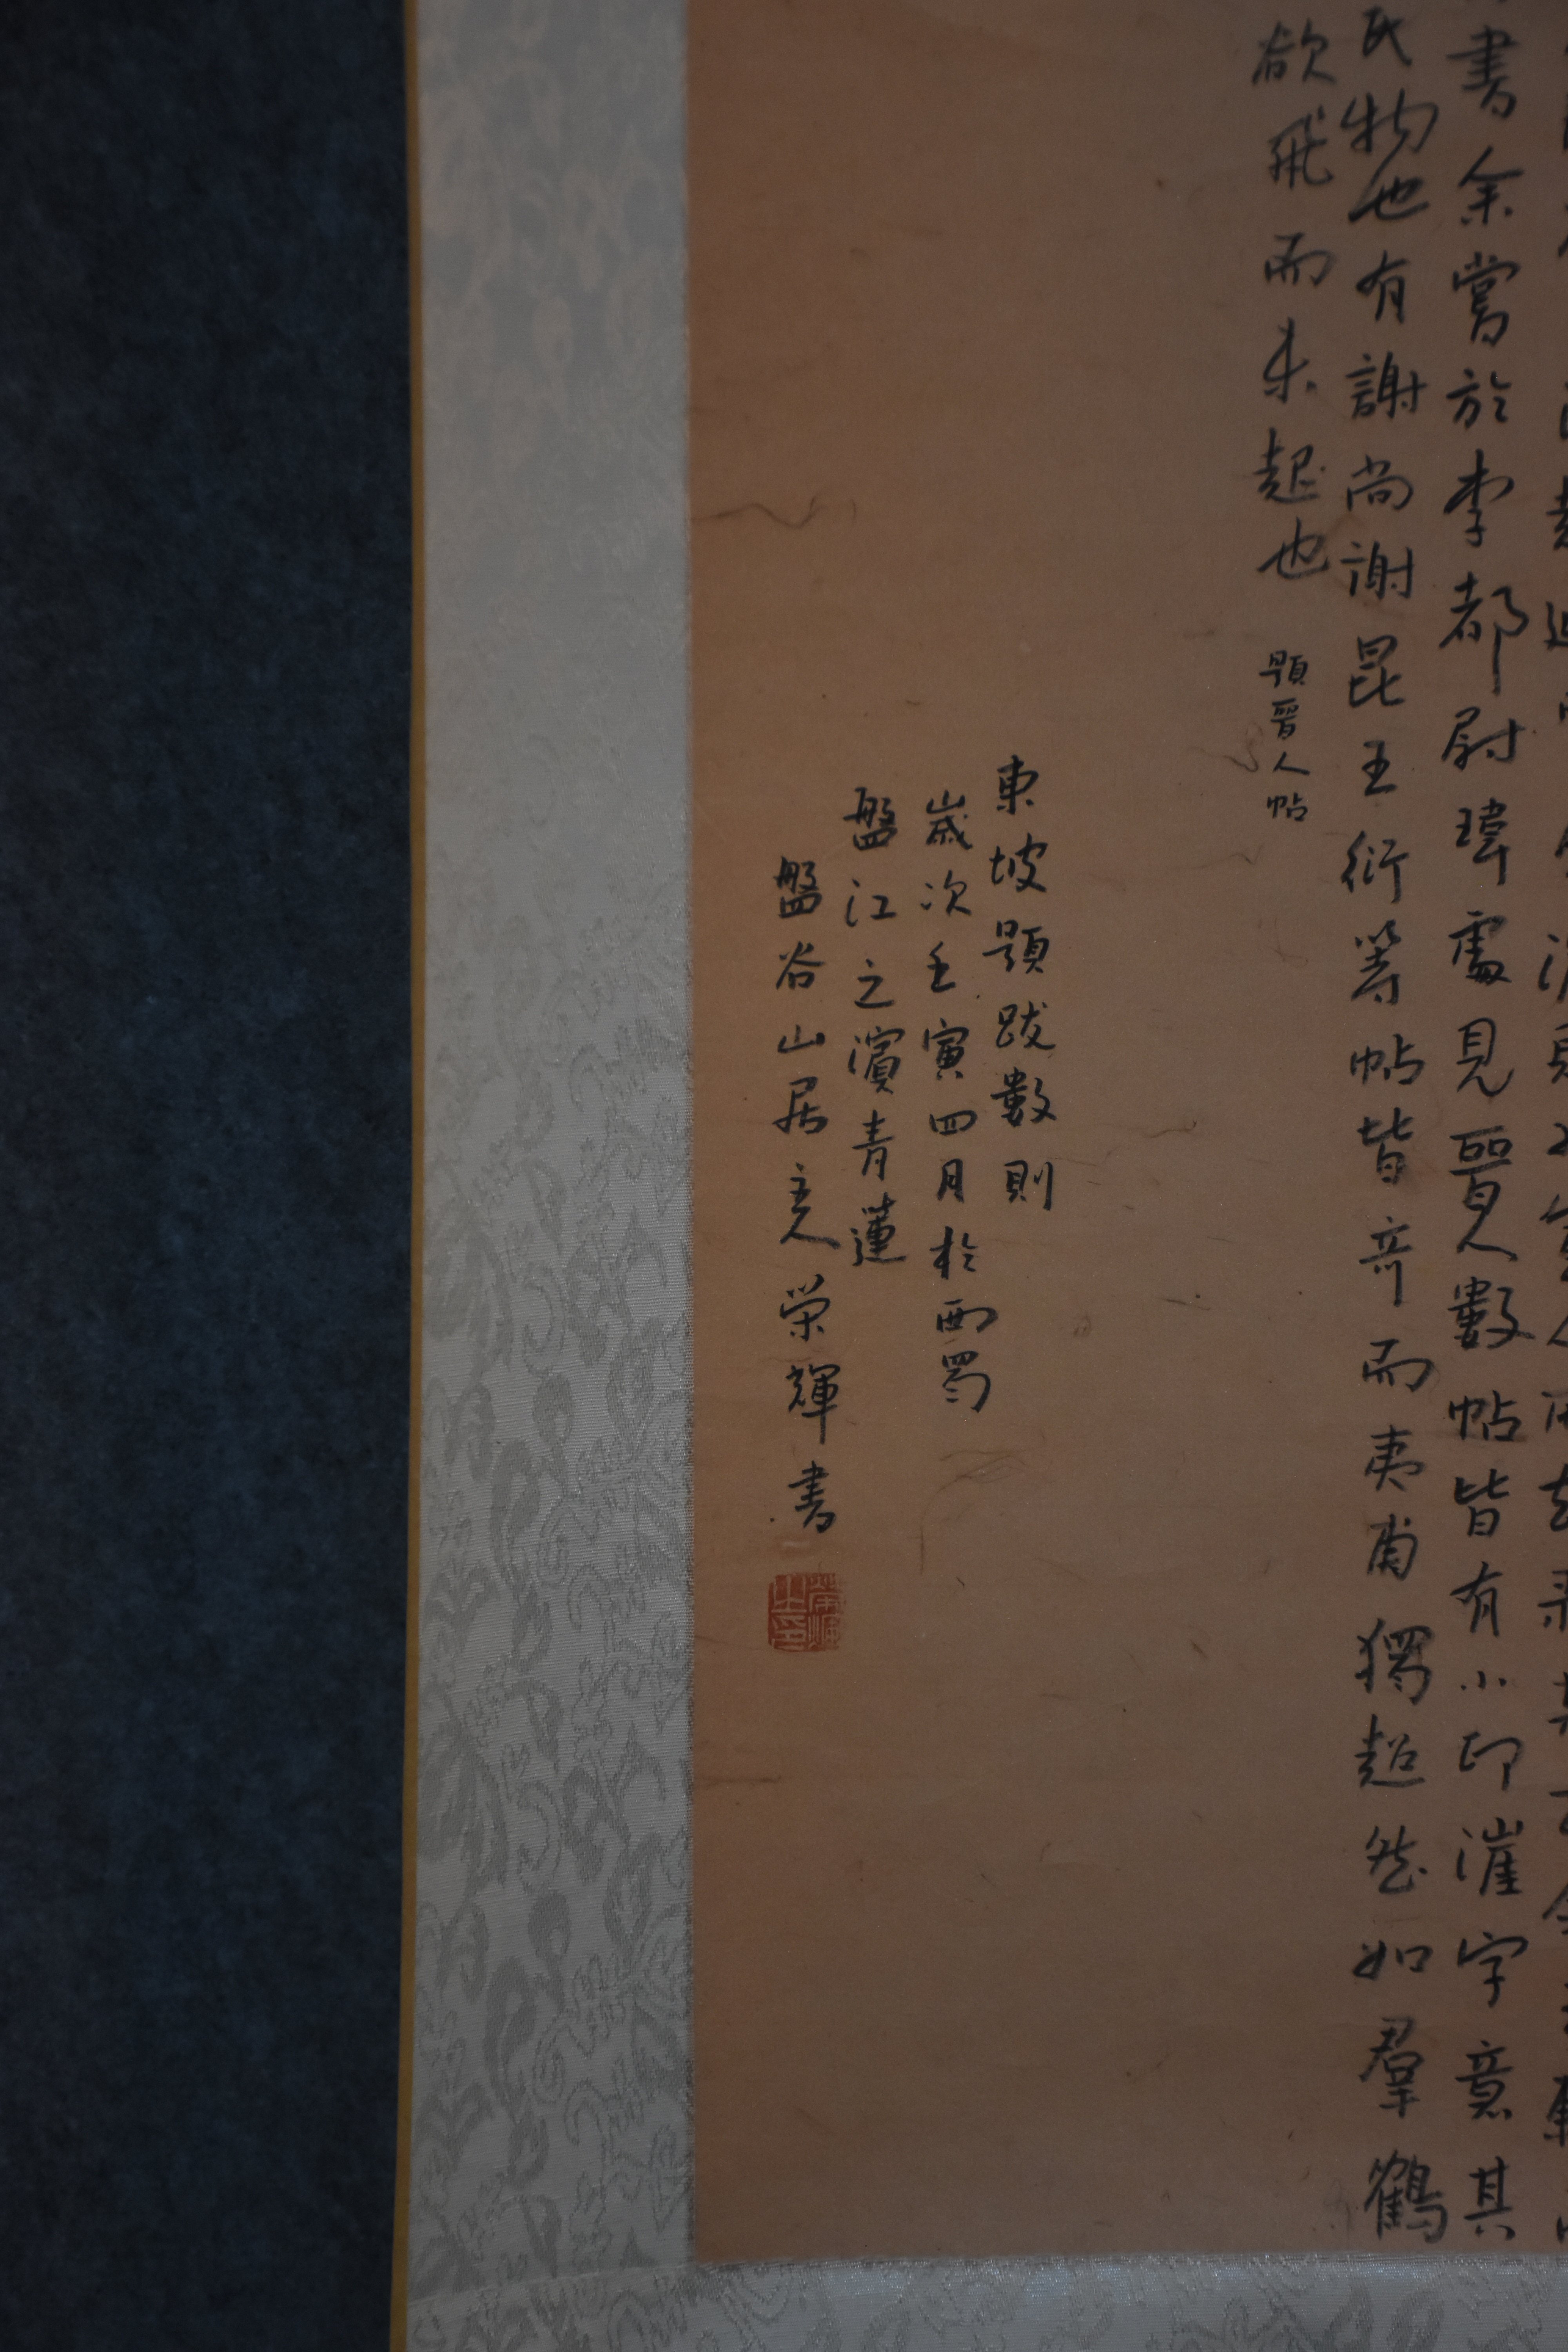 書余嘗於李都尉瑋處見晉人數帖皆有小印漼字意其
氏物也有謝尚謝昆王衍等帖皆奇而夷甫獨超然如羣鶴
欲飛而未起也
題晉人帖
東坡題跋數則
歲次壬寅四月於西蜀
盤江之濱青蓮
盤谷山居主人榮輝書
榮輝之印